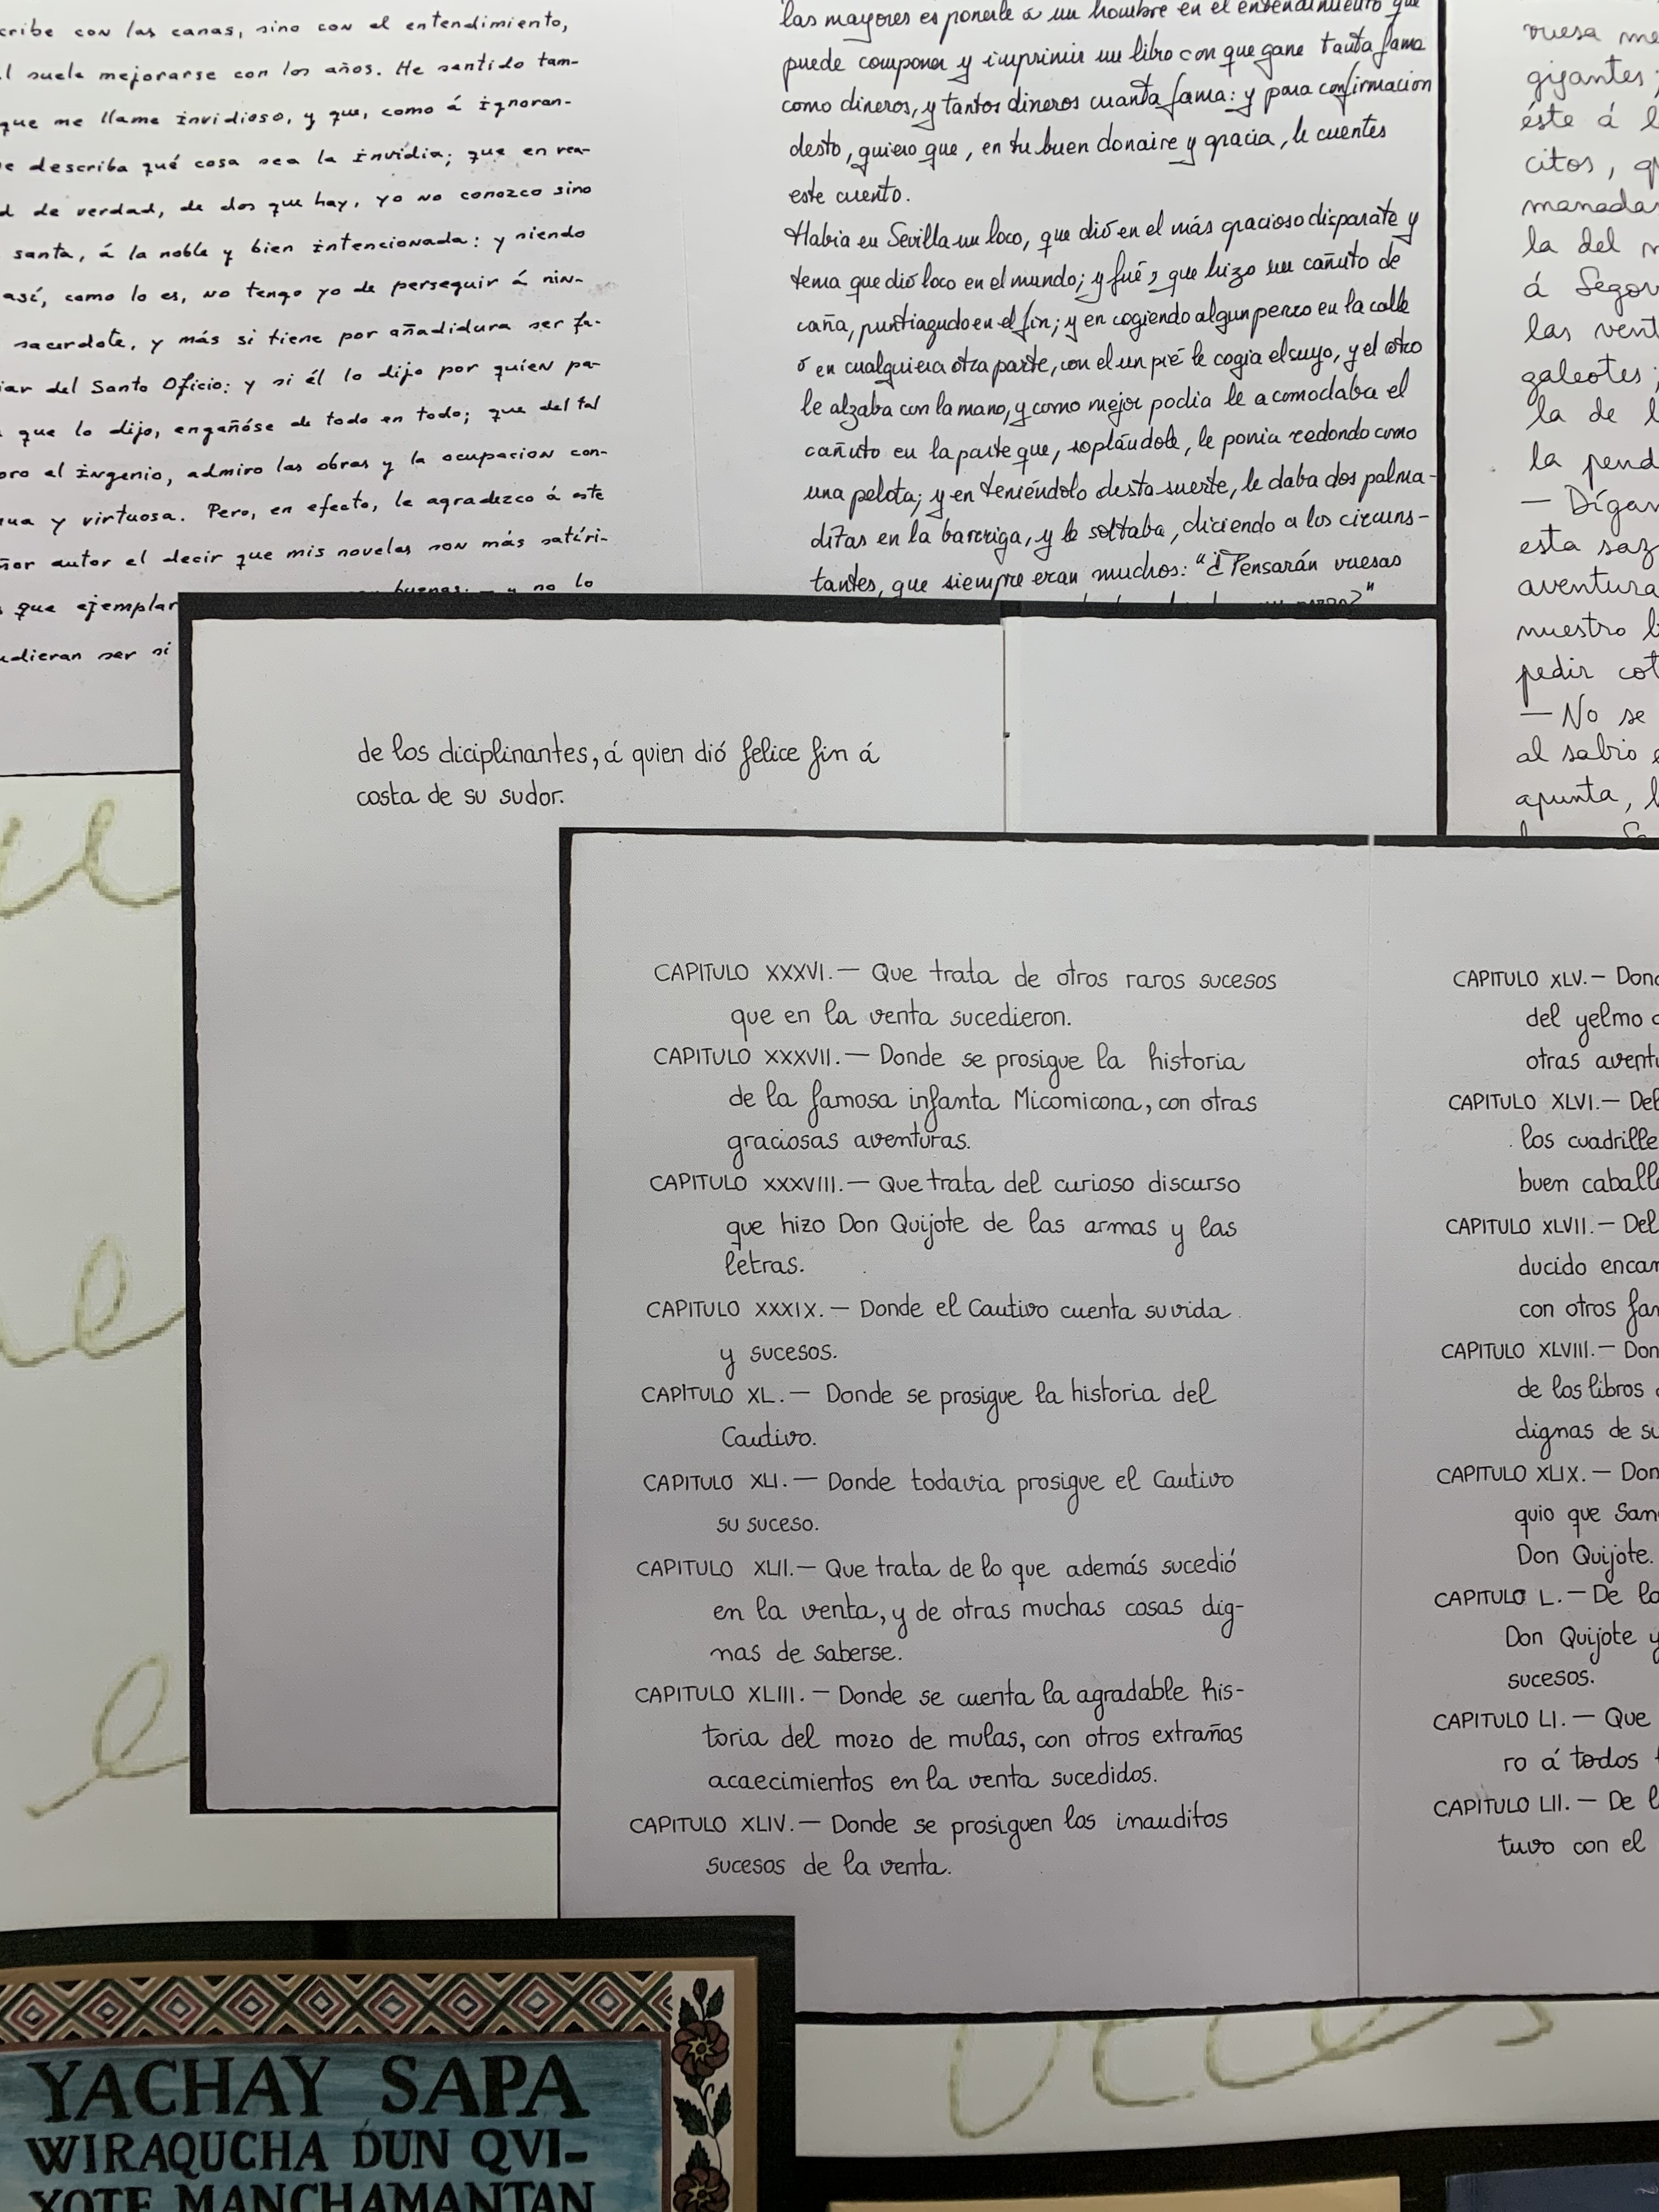 cribe con las canas, sino con el entendimiento,
l suele mejorarse con los años. He sentido tam-
que me llame invidioso, y que, como á ignoran-
e describa qué cosa sea la invidia; que en rea-
d de verdad, de dos que hay, yo no conozco sino
santa, á la noble y bien intencionada: y siendo
así, como lo es, no tengo yo de perseguir á nin-
sacerdote, y más si tiene por añadidura ser fa-
iar del Santo Oficio: y si él lo dijo por quien pa-
que lo dijo, engañóse de todo en todo; que del tal
oro el ingenio, admiro las obras y la ocupacion con-
nua y virtuosa. Pero, en efecto, le agradezco á este
ñor autor el decir que mis novelas son más satíri-
s que ejemplar buenas; y no lo
udieran ser si
las mayores es ponerle á un hombre en el entendimiento que
puede componer y imprimir un libro con que gane tanta fama
como dineros, y tantos dineros cuanta fama: y para confirmacion
desto, quiero que, en tu buen donaire y gracia, le cuentes
este cuento.
Habia en Sevilla un loco, que dió en el más gracioso disparate y
tema que dió loco en el mundo; y fué, que hizo un cañuto de
caña, puntiagudo en el fin; y en cogiendo algun perro en la calle
ó en cualquiera otra parte, con el un pié le cogia el suyo, y el otro
le alzaba con la mano, y como mejor podia le acomodaba el
cañuto en la parte que, soplándole, le ponia redondo como
una pelota; y en teniéndolo desta suerte, le daba dos palma-
ditas en la barriga, y le soltaba, diciendo a los circuns-
tantes, que siempre eran muchos: "¿Pensarán vuesas
perro?"
vuesa me
gigantes;
éste á l
citos, q
manadas
la del m
á Segov
las vent
galeotes;
la de l
la pend
— Dígam
esta saz
aventura
nuestro l
pedir cot
— No se
al sabio e
apunta, l
de los diciplinantes, á quien dió felice fin á
costa de su sudor.
CAPITULO XXXVI.— Que trata de otros raros sucesos
que en la venta sucedieron.
CAPITULO XXXVII.— Donde se prosigue la historia
de la famosa infanta Micomicona, con otras
graciosas aventuras.
CAPITULO XXXVIII.— Que trata del curioso discurso
que hizo Don Quijote de las armas y las
letras.
CAPITULO XXXIX.— Donde el Cautivo cuenta su vida
y sucesos.
CAPITULO XL.— Donde se prosigue la historia del
Cautivo.
CAPITULO XLI.— Donde todavia prosigue el Cautivo
su suceso.
CAPITULO XLII.— Que trata de lo que además sucedió
en la venta, y de otras muchas cosas dig-
nas de saberse.
CAPITULO XLIII.— Donde se cuenta la agradable his-
toria del mozo de mulas, con otros extraños
acaecimientos en la venta sucedidos.
CAPITULO XLIV.— Donde se prosiguen los inauditos
sucesos de la venta.
CAPITULO XLV.— Dond
del yelmo d
otras aventu
CAPITULO XLVI.— Del
los cuadrille
buen caball
CAPITULO XLVII.— Del
ducido encan
con otros fam
CAPITULO XLVIII.— Don
de los libros
dignas de su
CAPITULO XLIX.— Don
quio que San
Don Quijote.
CAPITULO L.— De la
Don Quijote y
sucesos.
CAPITULO LI.— Que
ro á todos
CAPITULO LII.— De l
tuvo con el
YACHAY SAPA
WIRAQUCHA DUN QVI-
XOTE MANCHAMANTAN